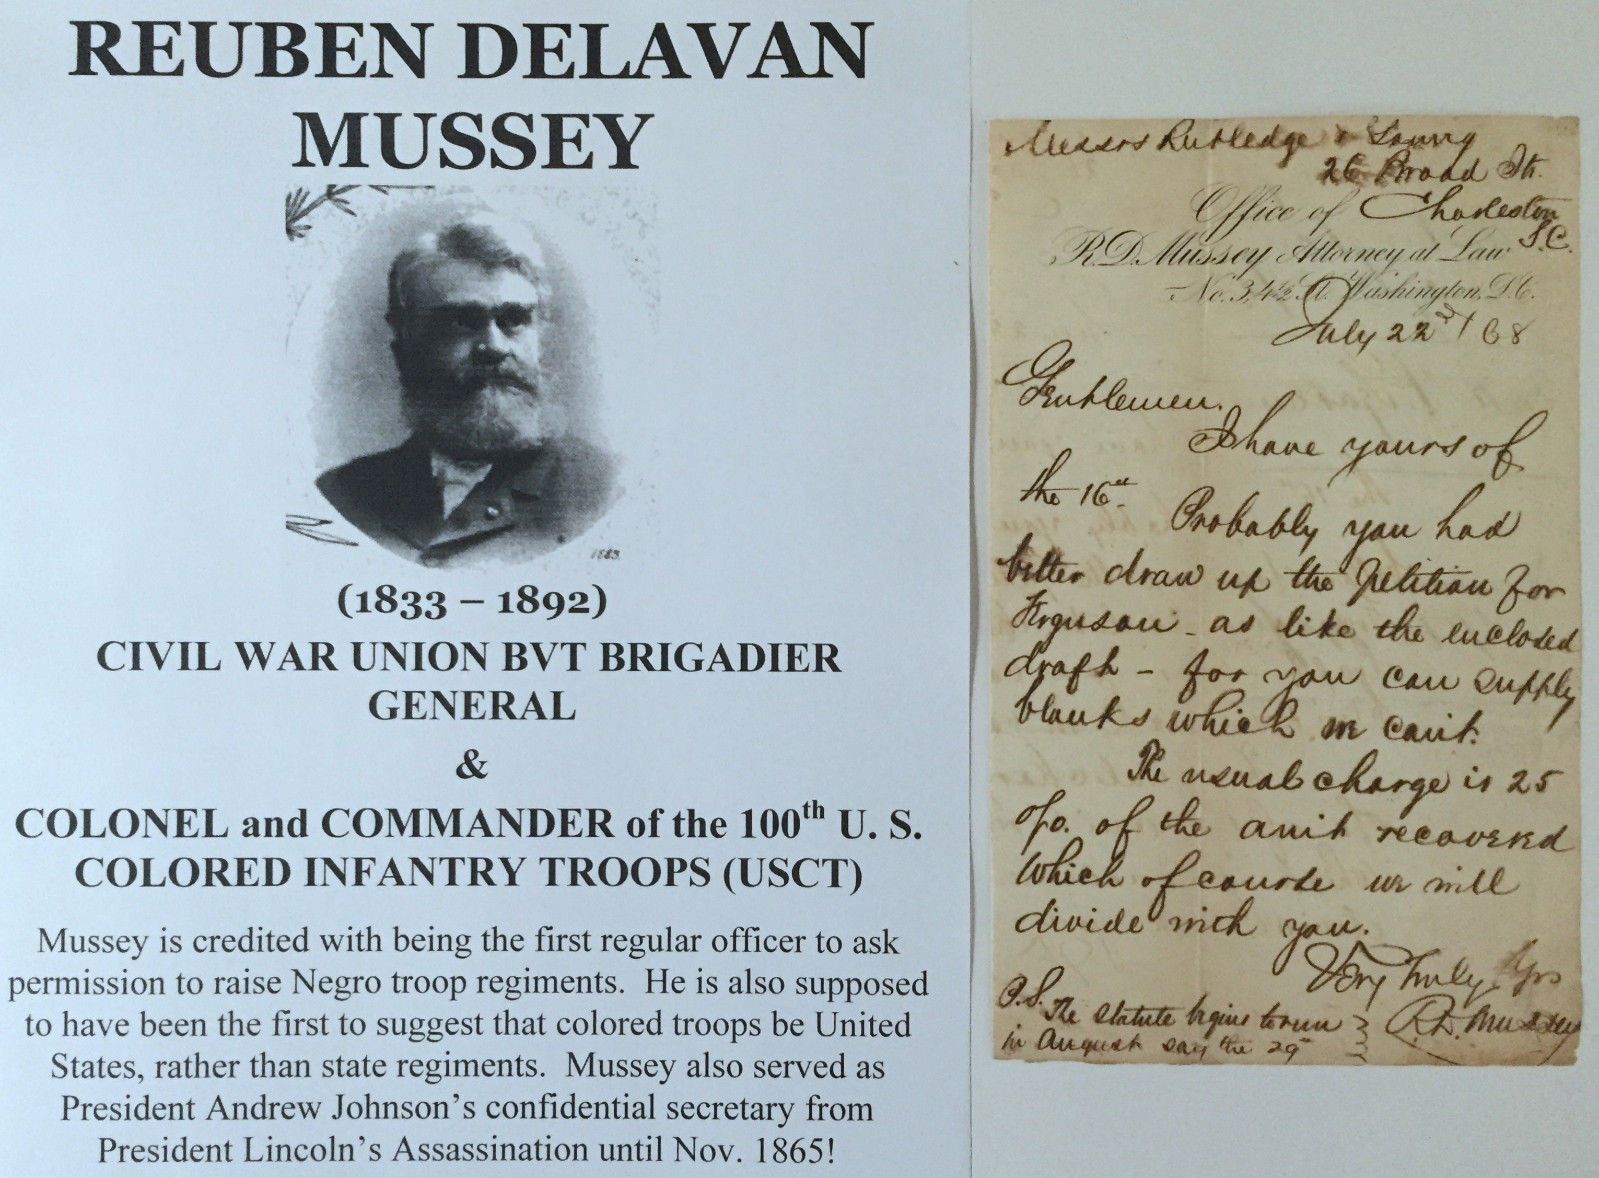 REUBEN DELAVAN
MUSSEY
1883.
(1833 – 1892)
CIVIL WAR UNION BVT BRIGADIER
GENERAL
&
COLONEL and COMMANDER of the 100th U. S.
COLORED INFANTRY TROOPS (USCT)
Mussey is credited with being the first regular officer to ask
permission to raise Negro troop regiments. He is also supposed
to have been the first to suggest that colored troops be United
States, rather than state regiments. Mussey also served as
President Andrew Johnson's confidential secretary from
President Lincoln's Assassination until Nov. 1865!
Messrs Rutledge & Young
26 Broad St.
Office of Charleston
S.C.
R.D. Mussey Attorney at Law
No. 3, 4½ St. Washington, D.C.
July 22d / 68
Gentlemen.
I have yours of
the 16th. Probably you had
better draw up the petition for
Ferguson - as like the enclosed
draft - for you can supply
blanks which we can't.
The usual charge is 25
o/o. of the amt recovered
which of course we will
divide with you.
Very truly Yrs
R.D. Mussey
P.S. The statute begins to run
in August say the 29th